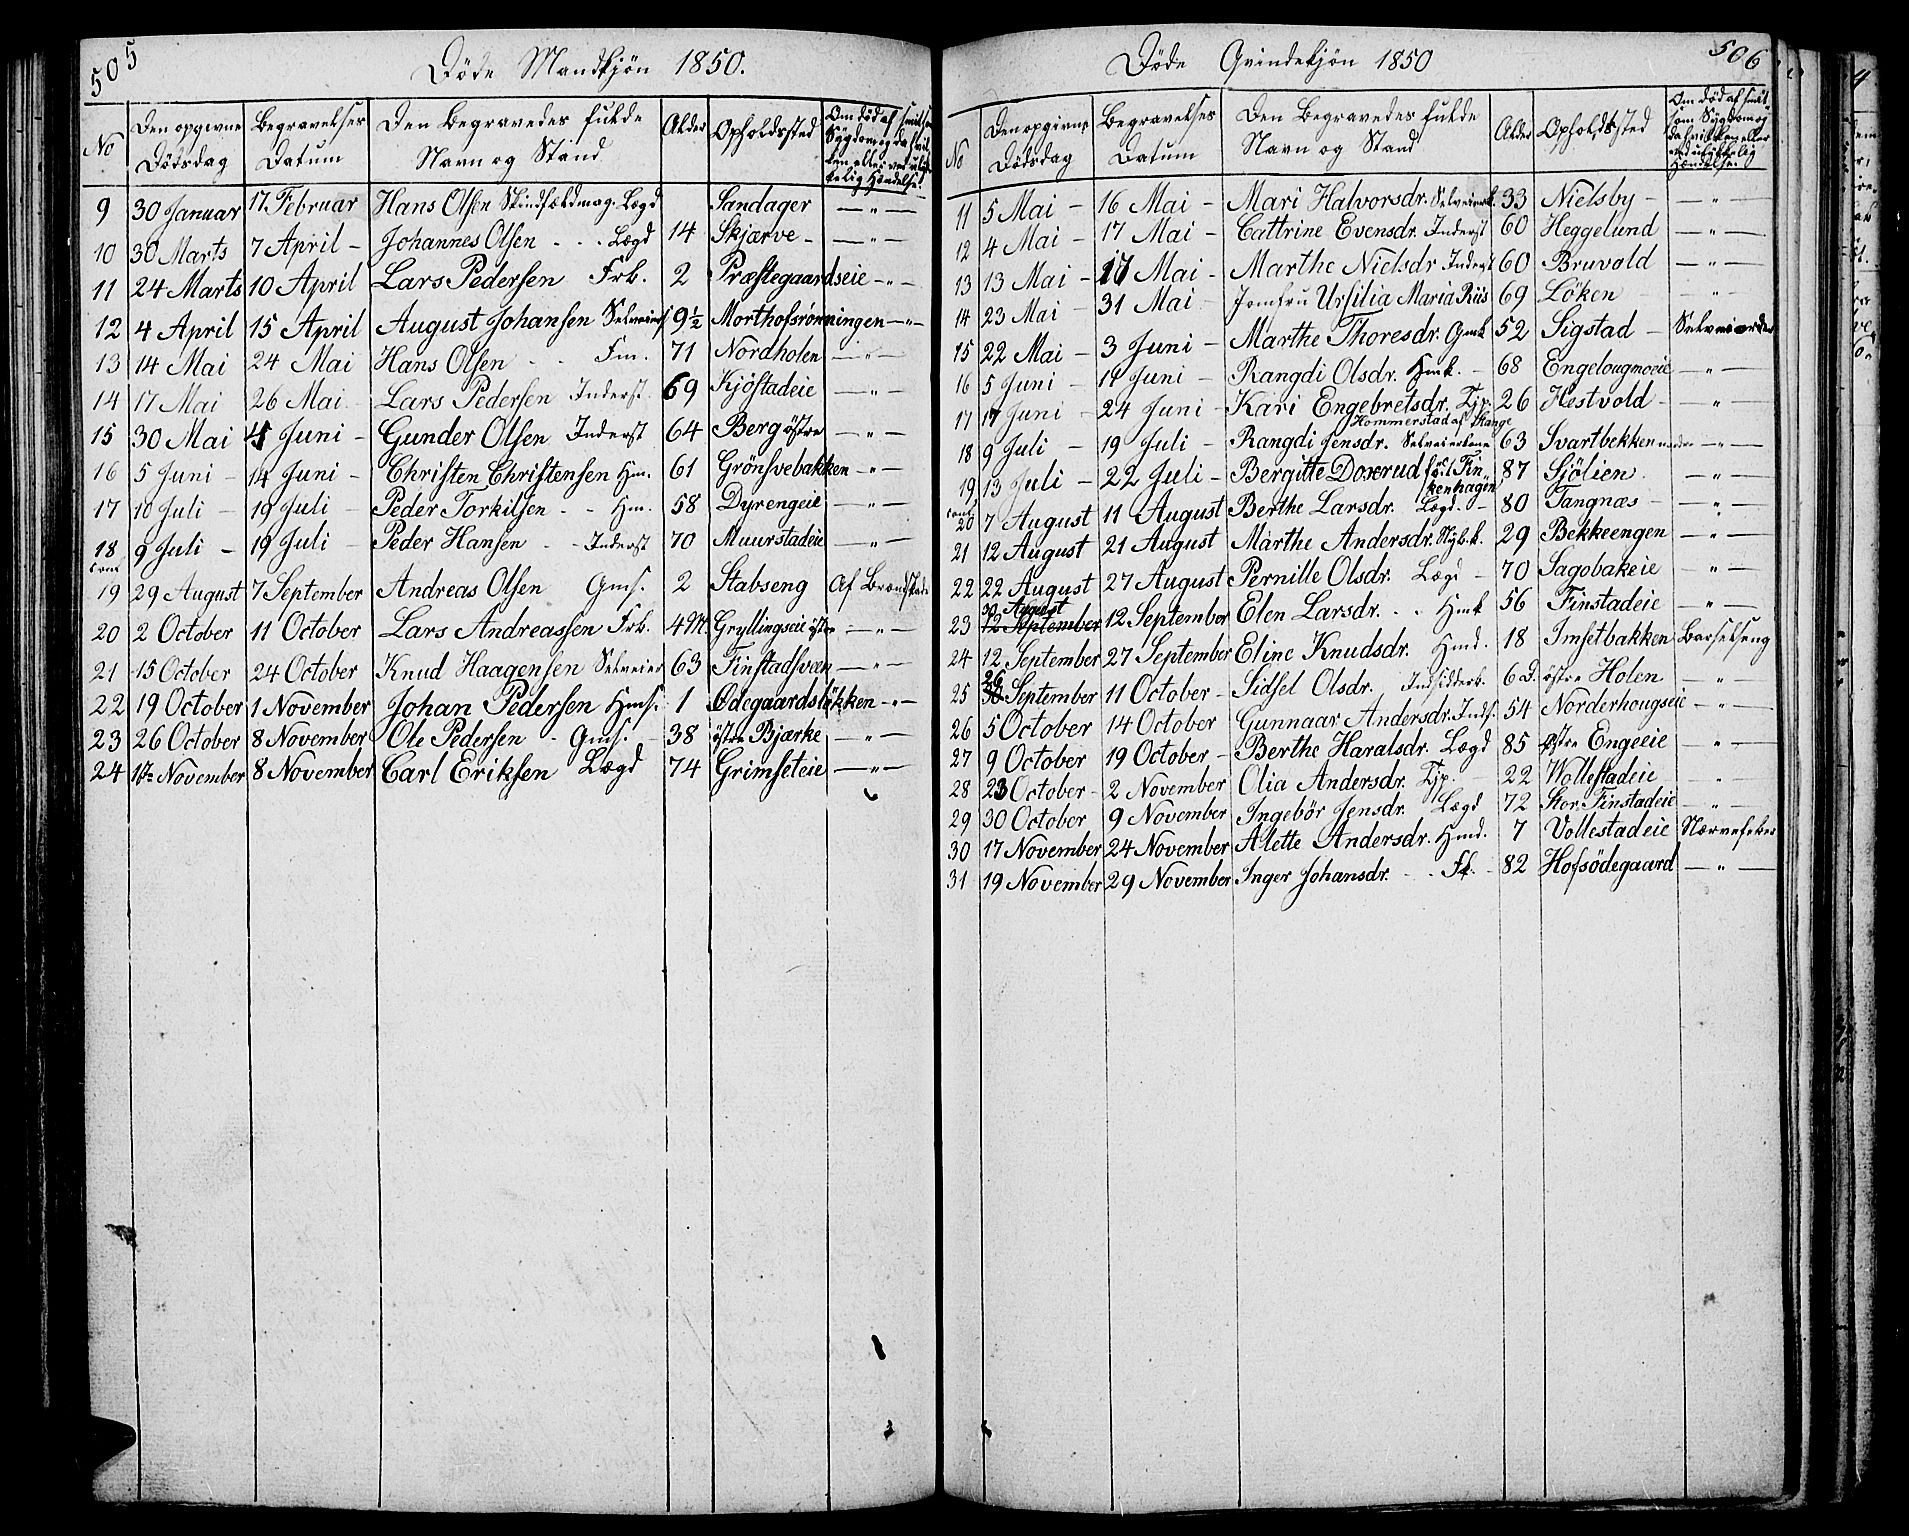 505
Døde Mandkjøn 1850.
No
Den opgivne Dødsdag
Begravelses Datum
Den Begravedes fulde Navn og Stand
Alder
Opholdssted
Om død af smitsom Sygdom og da hvilken eller ved ulykkelig Hændelse.
9 30 Januar 17 Februar Hans Olsen Lægd Sandager — " —
10 30 Marts 7 April - Johannes Olsen - - Lægd 14 Skjærve - — " —
11 24 Marts 10 April Lars Pedersen Frb. 2 Præstegaardseie - " -
12 4 April 15 April August Johansen Selveiers 9½ Morthofsrønningen - " -
13 14 Mai 24 Mai Hans Olsen - - Fm. 71 Nordholen — " —
14 17 Mai 26 Mai Lars Pedersen Inderst. 69 Kjöstadeie — " —
15 30 Mai 4 Juni - Gunder Olsen Inderst 64 Berg østre — " —
16 5 Juni - 14 Juni - Christen Christensen Hm. 61 Grönsvebakken - " -
17 10 Juli - 19 Juli - Peder Torkilsen - - Hm. 58 Dyrengeie — " —
18 9 Juli - 19 Juli - Peder Hansen - - Inderst 70 Muurstadeie — " —
19 29 August 7 September Andreas Olsen Gms. 2 Stabseng Af Brændskade
20 2 October 11 October Lars Andreassen Frb. 4 M. Gryllingseie østre — " —
21 15 October 24 October Knud Haagensen Selveier 63 Finstadsveen — " —
22 19 October 1 November Johan Pedersen Hms. 1 Ødegaardsløkken - " -
23 26 October 8 November Ole Pedersen - Gms. - 38 østre Bjærke — " —
24 1ste November 8 November Carl Eriksen Lægd 74 Grimseteie — " —
506
Døde Qvindekjön 1850
No
Den opgivne Dödsdag
Begravelses Datum
Den Begravedes fulde Navn og Stand
Alder
Opholdssted
Om død af smitsom Sygdom og da hvilken eller ved ulykkelig Hændelse
11 5 Mai - 16 Mai - Mari Halvorsdr. Selveierk. 33 Nielsby - — " —
12 4 Mai - 17 Mai - Cattrine Evensdr. Inderst 60 Heggelund — " —
13 13 Mai - 17 Mai - Marthe Nielsdr Inderst 60 Bruvold — " —
14 23 Mai - 31 Mai Jomfru Ursilia Maria Riis 69 Löken — " —
15 22 Mai - 3 Juni - Marthe Thoresdr. Gmk 52 Sigstad -
16 5 Juni - 14 Juni - Rangdi Olsdr. Hmk. - 68 Engelougmoeie — " —
17 17 Juni - 24 Juni - Kari Engebretsdr. Tjp. 26 Hestvold - — " —
Hommerstad af Stange
18 9 Juli - 19 Juli - Rangdi Jensdr. Selveierkone 63 Svartbekken nedre — " —
19 13 Juli - 22 Juli - Bergitte Doxrud föd Finkenhagen 87 Sjölien — " —
20 7 August 11 August Berthe Larsdr. Lægd. - 80 Tangnæs - — " —
21 12 August 21 August Marthe Andersdr. Nyb.k. 29 Bekkeengen — " —
22 22 August 27 August Pernille Olsdr. Lægd - 70 Sagobakeie — " —
30 August
23 12 September 12 September Elen Larsdr. - - Hmk 56 Finstadeie — " —
24 12 September 27 September Eline Knudsdr. Hmd. 18 Imsetbakken Barselseng
26
25 30 September 11 October - Sidsel Olsdr. Indsidderb. 6 D. østre Holen — " —
26 5 October 14 October Gunnaar Andersdr. Inds. 54 Norderhougseie — " —
27 9 October 19 October - Berthe Haralsdr. Lægd 85 østre Engeeie — " —
28 23 October - 2 November Olia Andersdr. Tjp. - 22 Wollestadeie — " —
29 30 October 9 November Ingebör Jensdr. Lægd 72 Stor. Finstadeie — " —
30 17 November 24 November Alette Andersdr. Hmd. 7 Vollestadeie Nervefeber
31 19 November 29 November Inger Johansdr. - - Fk. - 82 Hofsödegaard — " —